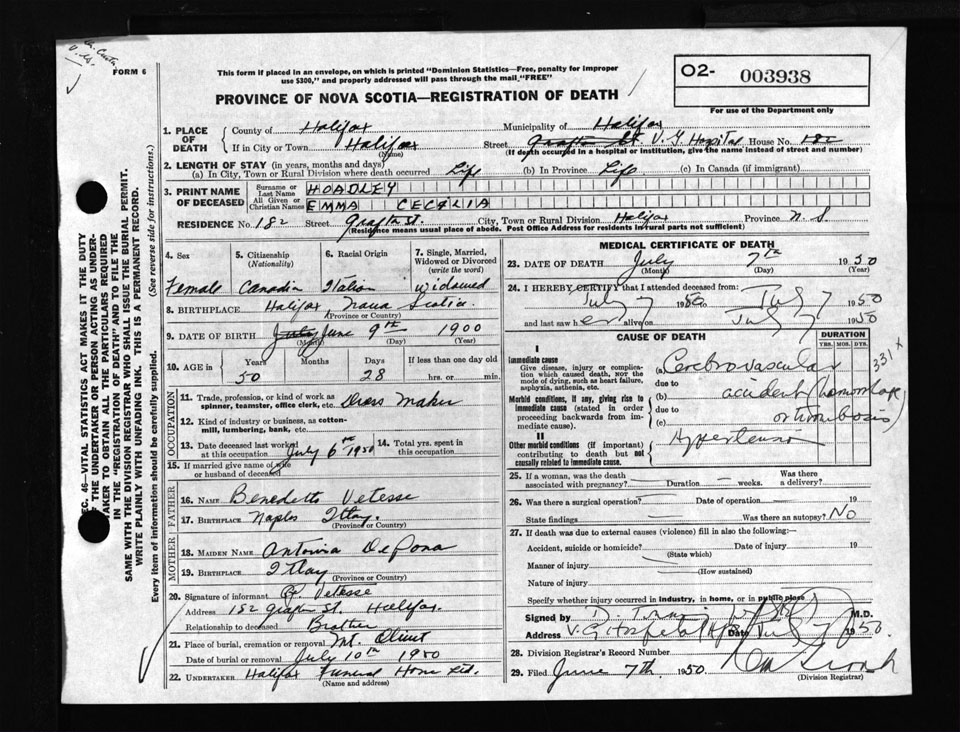 FORM 6
This form if placed in an envelope, on which is printed "Dominion Statistics—Free, penalty for improper
use $300," and properly addressed will pass through the mail "FREE"
PROVINCE OF NOVA SCOTIA—REGISTRATION OF DEATH
O2- 003938
For use of the Department only
1. PLACE OF DEATH County of Halifax Municipality of Halifax
If in City or Town Halifax (Name) Street Grafton St. V. G. Hospital House No. 182
(If death occurred in a hospital or institution, give the name instead of street and number)
2. LENGTH OF STAY (in years, months and days)
(a) In City, Town or Rural Division where death occurred Life (b) In Province Life (c) In Canada (if immigrant)
3. PRINT NAME OF DECEASED Surname or Last Name HOADLEY
All Given or Christian Names EMMA CECELIA
RESIDENCE No. 182 Street Grafton St. City, Town or Rural Division Halifax Province N. S.
(Residence means usual place of abode. Post Office Address for residents in rural parts not sufficient)
4. Sex 5. Citizenship (Nationality) 6. Racial Origin 7. Single, Married, Widowed or Divorced (write the word)
Female Canadian Italian Widowed
8. BIRTHPLACE Halifax Nova Scotia
(Province or Country)
9. DATE OF BIRTH July June 9th 1900
(Month) (Day) (Year)
10. AGE in Years Months Days If less than one day old
50 28 hrs. or min.
OCCUPATION
11. Trade, profession, or kind of work as spinner, teamster, office clerk, etc. Dress Maker
12. Kind of industry or business, as cotton-mill, lumbering, bank, etc.
13. Date deceased last worked at this occupation July 6th 1950 14. Total yrs. spent in this occupation
15. If married give name of wife or husband of deceased
FATHER
16. NAME Benedetto Vetesse
17. BIRTHPLACE Naples Ittay.
(Province or Country)
MOTHER
18. MAIDEN NAME Antonia
19. BIRTHPLACE Ittay
(Province or Country)
20. Signature of informant Vetesse
Address 182 Grafton St. Halifax.
Relationship to deceased Brother
21. Place of burial, cremation or removal Mt. Olivet
Date of burial or removal July 10th 1950
22. UNDERTAKER Halifax Funeral Home Ltd.
(Name and address)
MEDICAL CERTIFICATE OF DEATH
23. DATE OF DEATH July 7th 1950
(Month) (Day) (Year)
24. I HEREBY CERTIFY that I attended deceased from:
July 7 1950 to July 7 1950
and last saw her alive on July 7 1950
CAUSE OF DEATH
DURATION
YRS. MOS. DYS.
I
Immediate cause
Give disease, injury or complication which caused death, NOT the mode of dying, such as heart failure, asphyxia, asthenia, etc.
(a) Cerebrovascular
due to
331 x
Morbid conditions, if any, giving rise to immediate cause (stated in order proceeding backwards from immediate cause).
(b) accident (hemorrhage
due to
(c) or thrombosis)
II
Other morbid conditions (if important) contributing to death but not causally related to immediate cause.
Hypertension
25. If a woman, was the death associated with pregnancy? Duration weeks. Was there a delivery?
26. Was there a surgical operation? Date of operation 19
State findings Was there an autopsy? No
27. If death was due to external causes (violence) fill in also the following:
Accident, suicide or homicide? Date of injury 19
(State which)
Manner of injury
(How sustained)
Nature of injury
Specify whether injury occurred in industry, in home, or in public place
Signed by M.D.
Address V. G. Hospital Hfx Date July 7 1950.
28. Division Registrar's Record Number
29. Filed June 7th. 1950
(Division Registrar)
SEC. 46—VITAL STATISTICS ACT MAKES IT THE DUTY
OF THE UNDERTAKER OR PERSON ACTING AS UNDER-
TAKER TO OBTAIN ALL THE PARTICULARS REQUIRED
IN THE "REGISTRATION OF DEATH" AND TO FILE THE
SAME WITH THE DIVISION REGISTRAR WHO SHALL ISSUE THE BURIAL PERMIT.
WRITE PLAINLY WITH UNFADING INK. THIS IS A PERMANENT RECORD.
Every item of information should be carefully supplied. (See reverse side for instructions.)